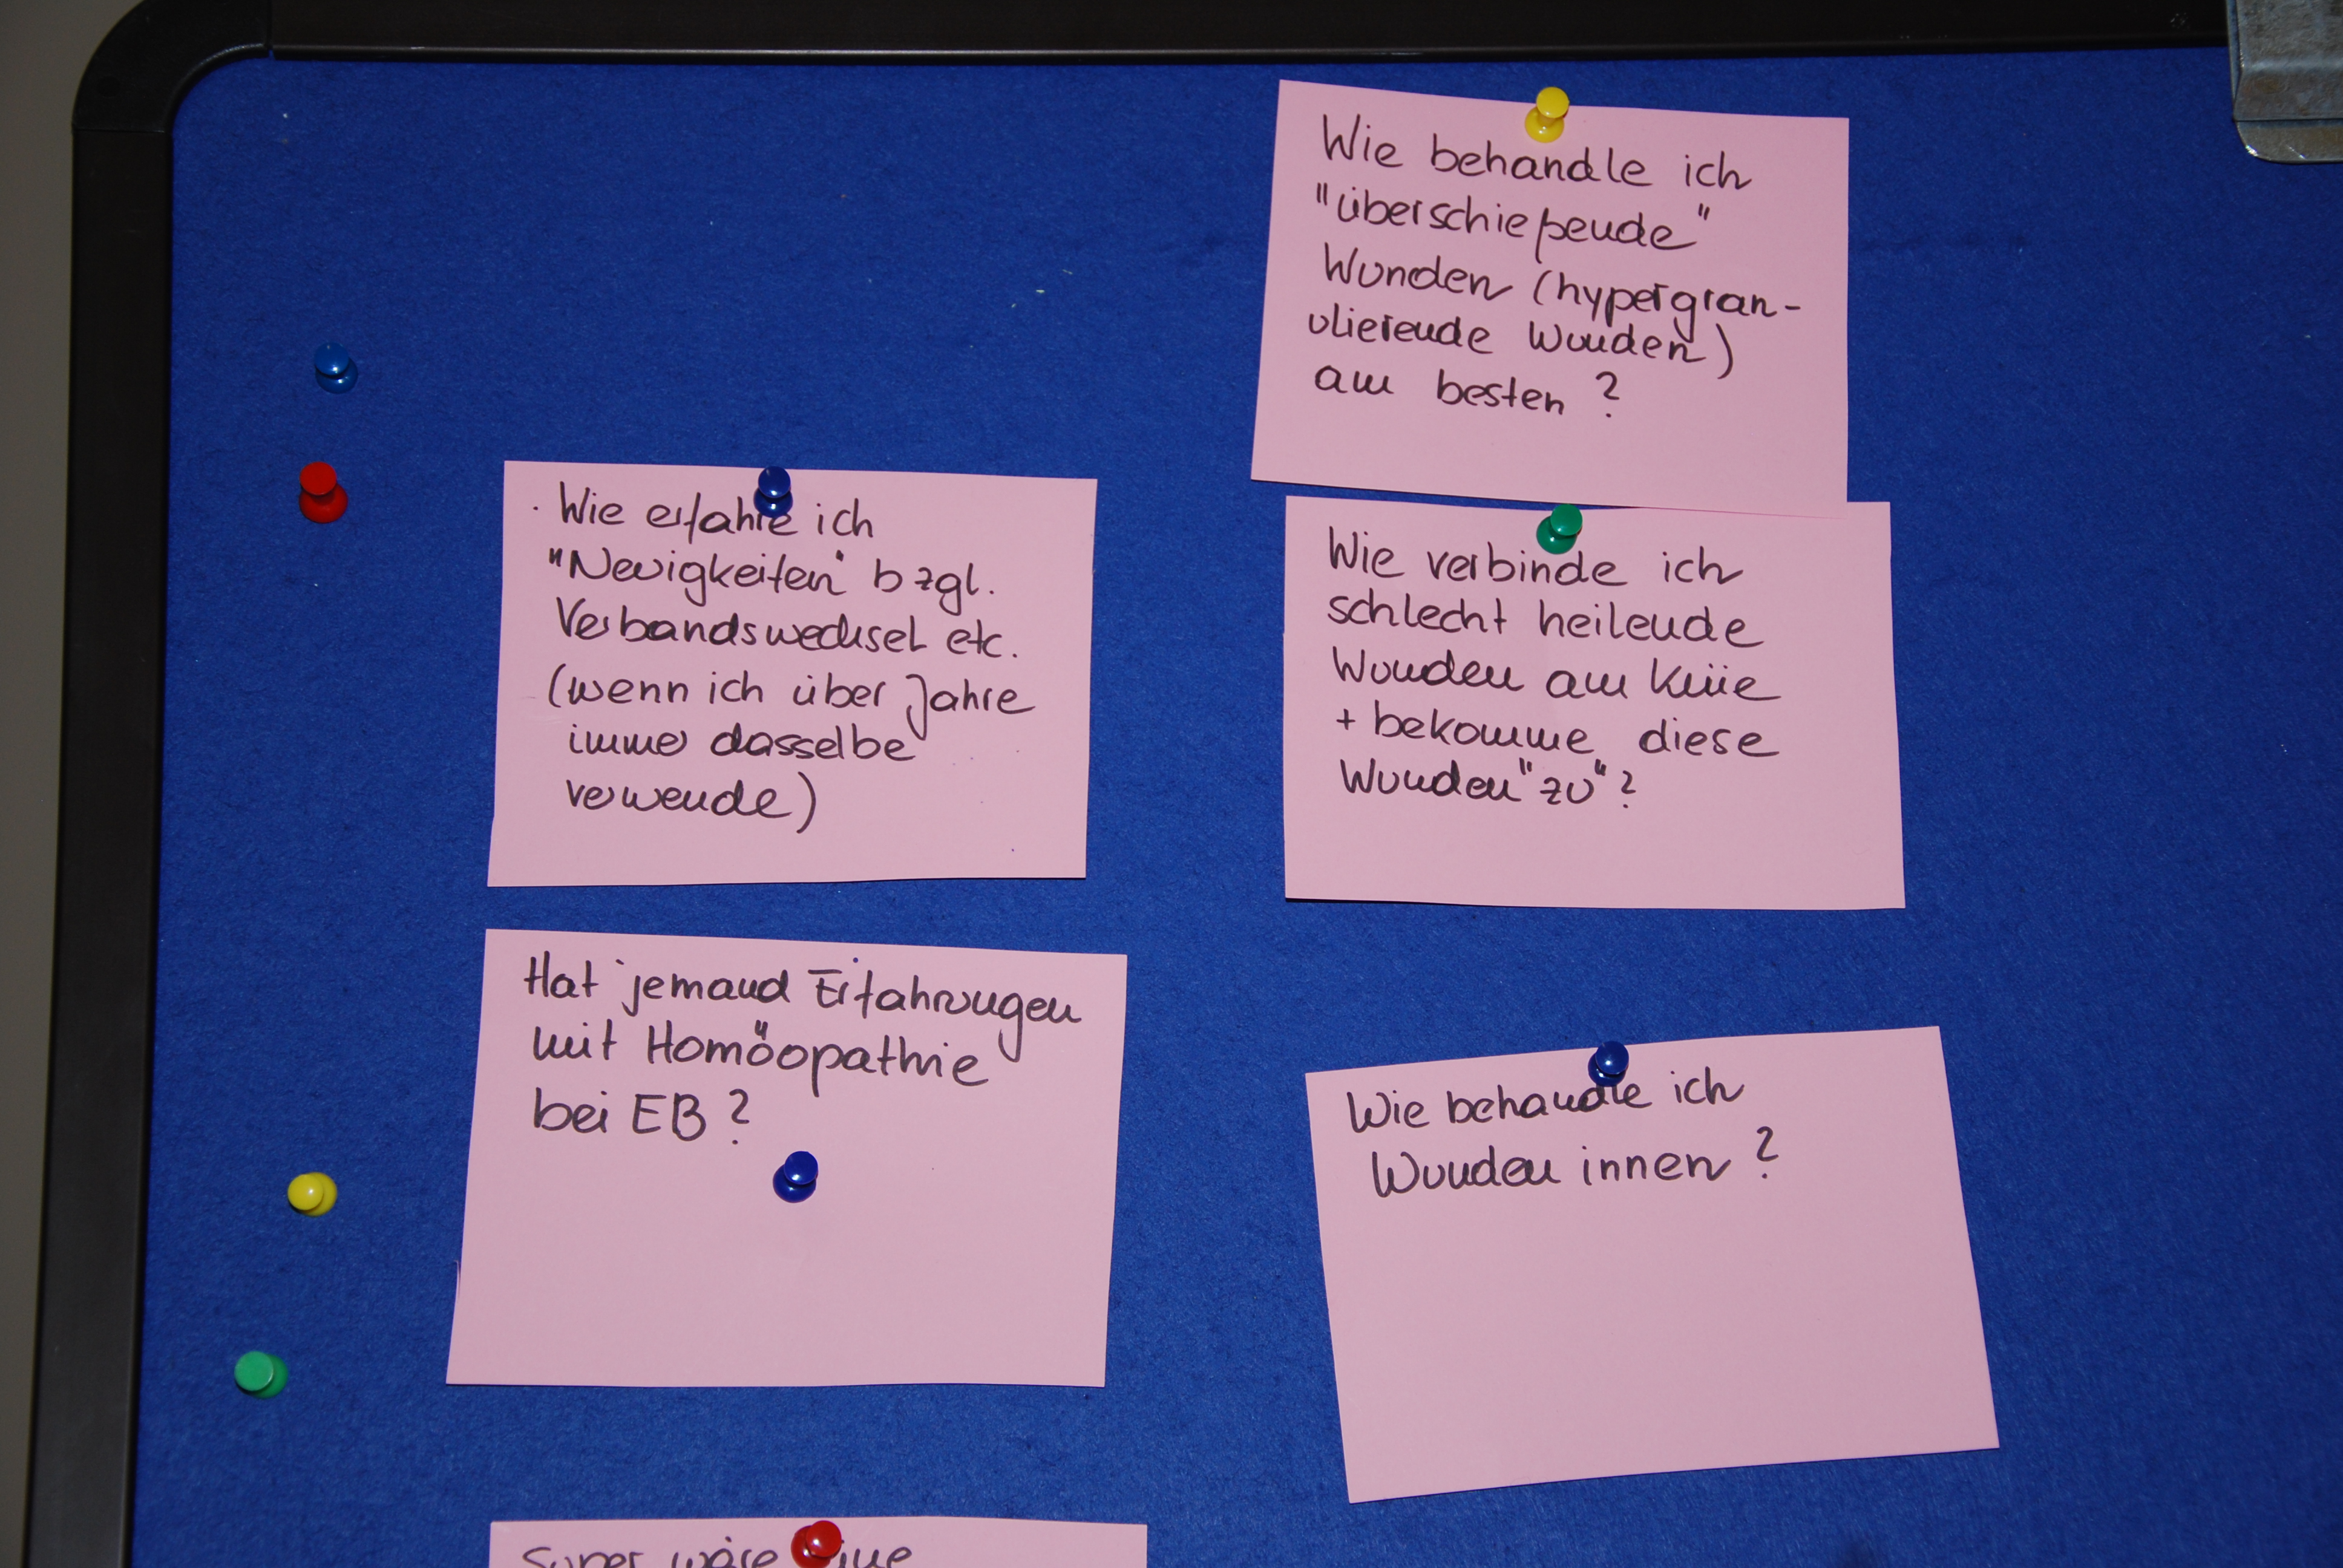 Wie behandle ich
"überschießende"
Wunden (hypergran-
ulierende Wunden)
am besten?
· Wie erfahre ich
"Neuigkeiten" bzgl.
Verbandswechsel etc.
(wenn ich über Jahre
immer dasselbe
verwende)
Wie verbinde ich
schlecht heilende
Wunden am Knie
+ bekomme diese
Wunden "zu"?
Hat jemand Erfahrungen
mit Homöopathie
bei EB?
Wie behandle ich
Wunden innen?
Super wäre eine